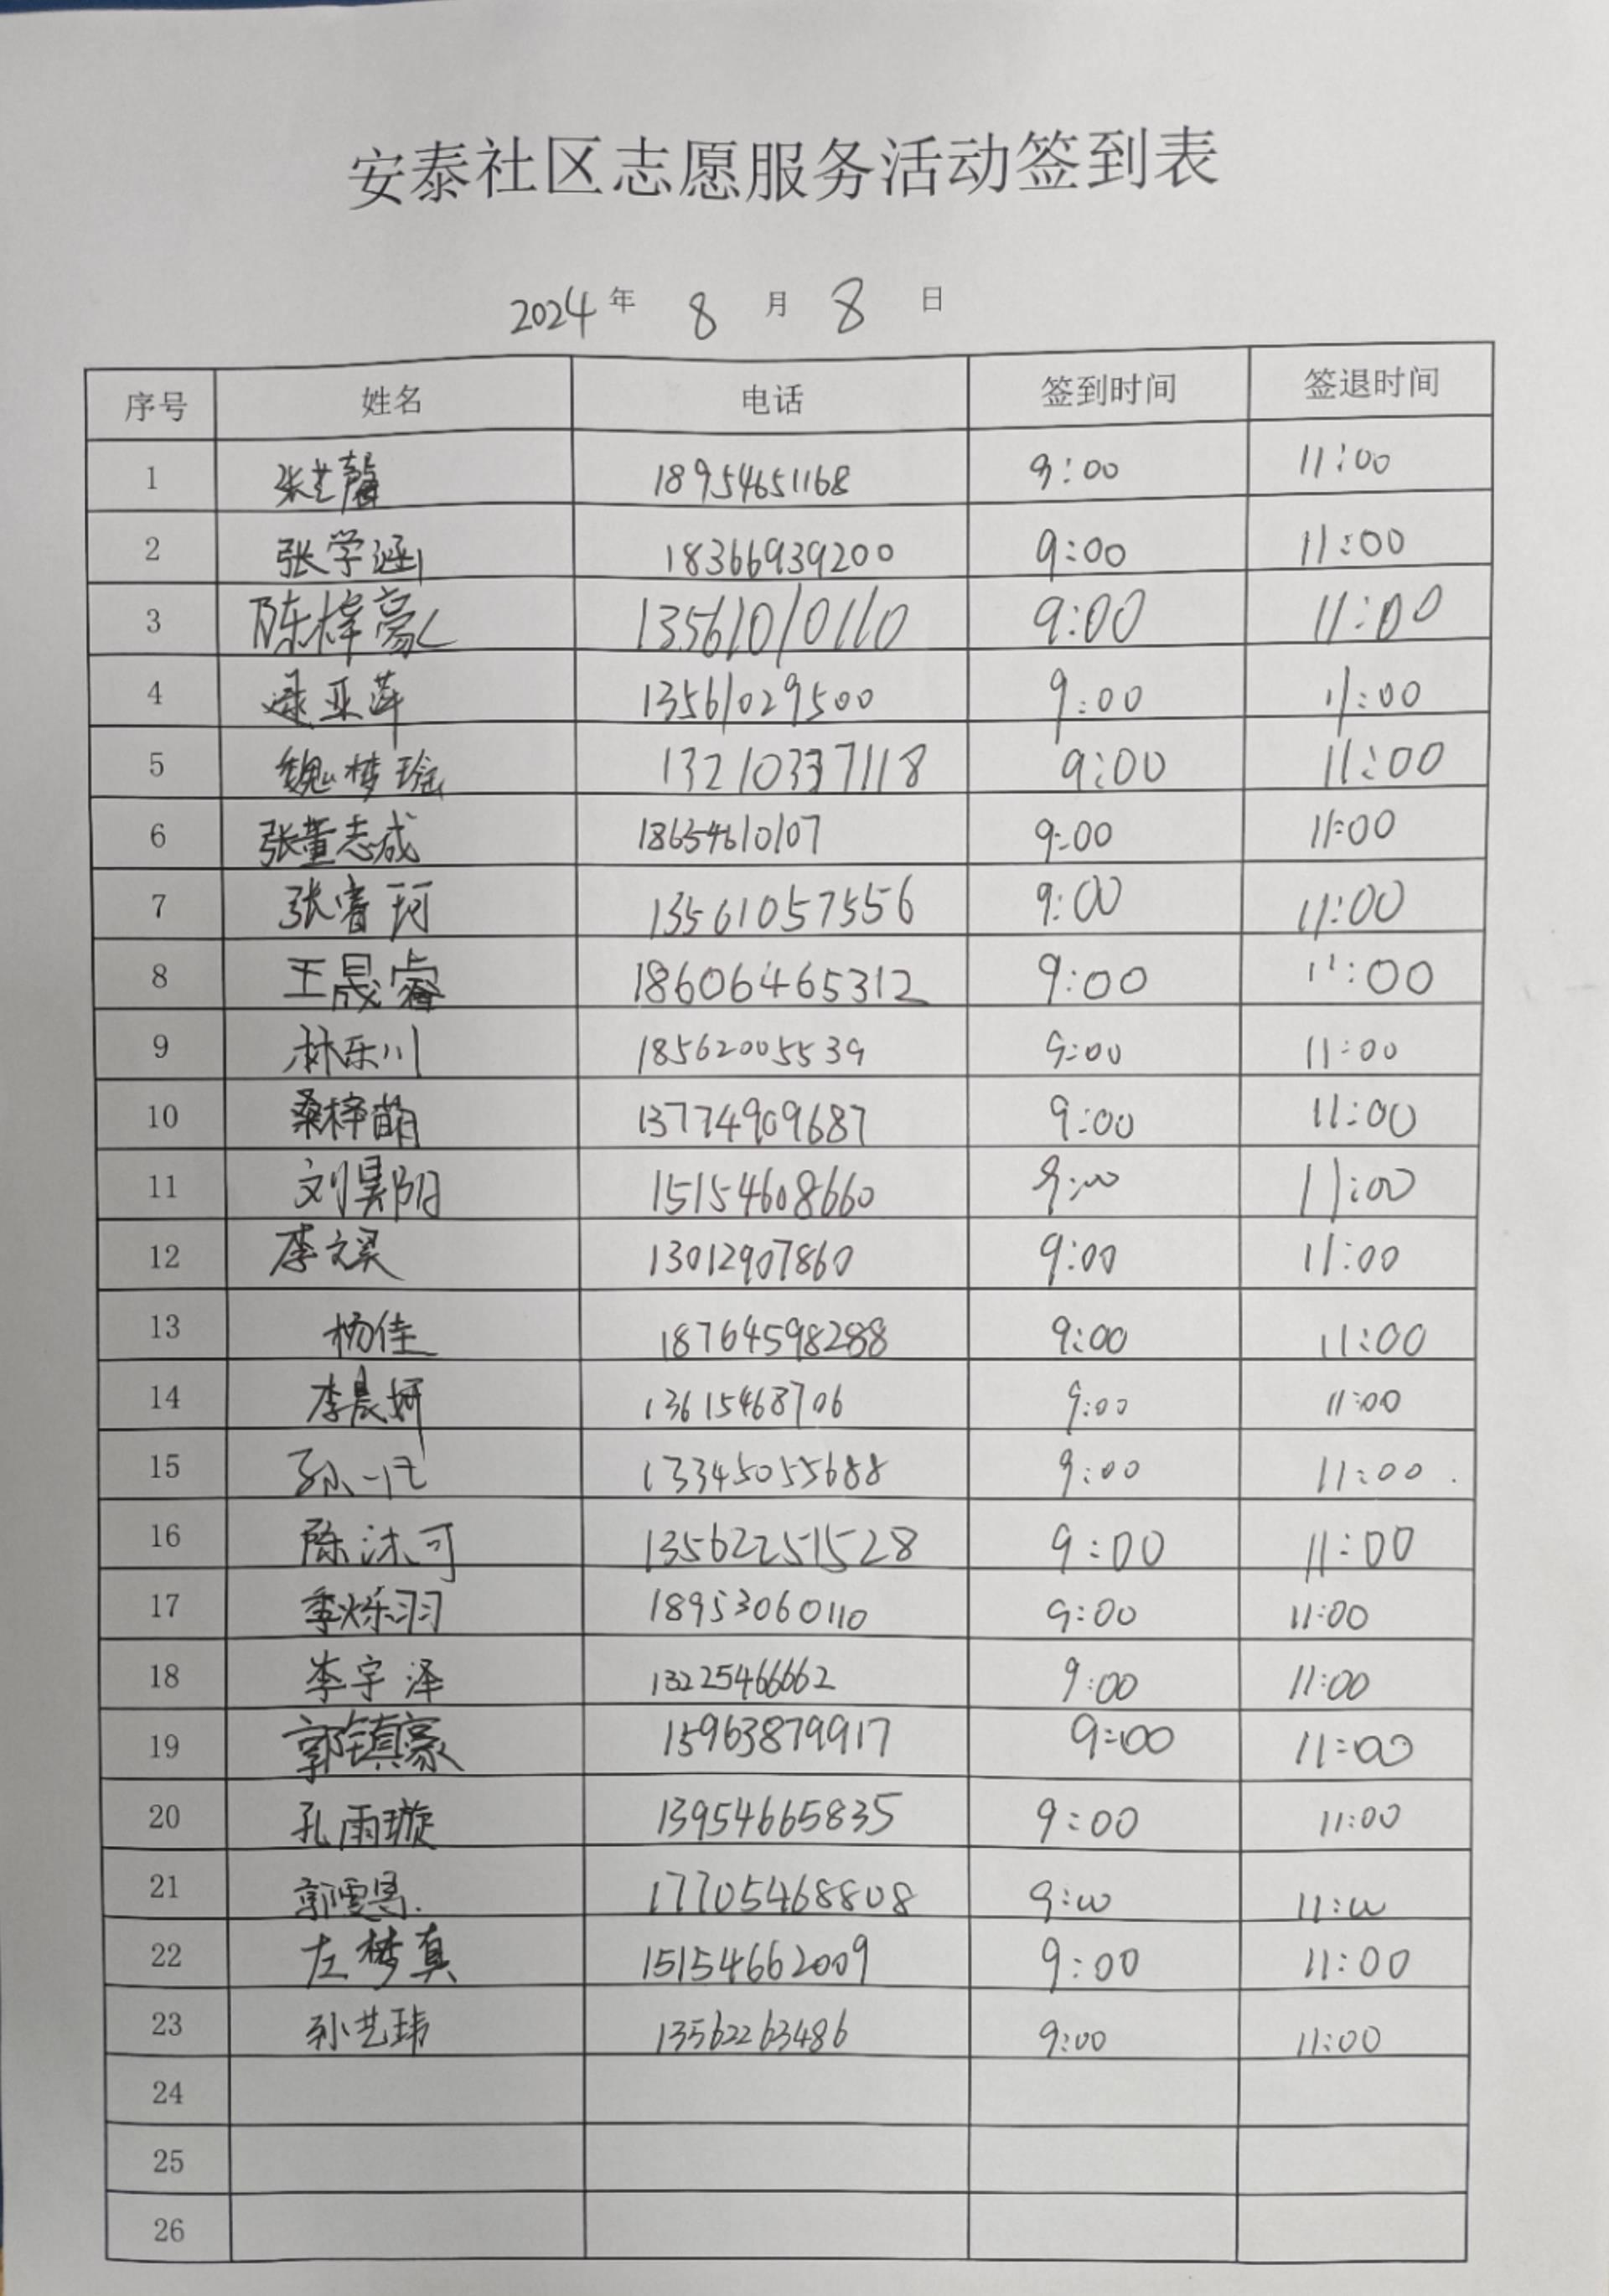 安泰社区志愿服务活动签到表
2024年 8 月 8 日
序号 姓名 电话 签到时间 签退时间
1 张艺馨 18954651168 9:00 11:00
2 张学涵 18366939200 9:00 11:00
3 陈梓豪 13561010110 9:00 11:00
4 亚萍 13561029500 9:00 11:00
5 魏梦瑶 13210337118 9:00 11:00
6 张董志成 18654610107 9:00 11:00
7 张睿珂 13561057556 9:00 11:00
8 王晟睿 18606465312 9:00 11:00
9 林乐川 18562005539 9:00 11:00
10 桑梓萌 13774909687 9:00 11:00
11 刘昊阳 15154608660 9:00 11:00
12 李文 13012907860 9:00 11:00
13 杨佳 18764598288 9:00 11:00
14 李晨妍 13615468706 9:00 11:00
15 孙一 13345055688 9:00 11:00
16 陈沐可 13562251528 9:00 11:00
17 季烁羽 18953060110 9:00 11:00
18 李宇泽 13225466662 9:00 11:00
19 郭镇豪 15963879917 9:00 11:00
20 孔雨璇 13954665835 9:00 11:00
21 郭 17705468808 9:00 11:00
22 左梦真 15154662009 9:00 11:00
23 孙艺玮 13562263486 9:00 11:00
24
25
26